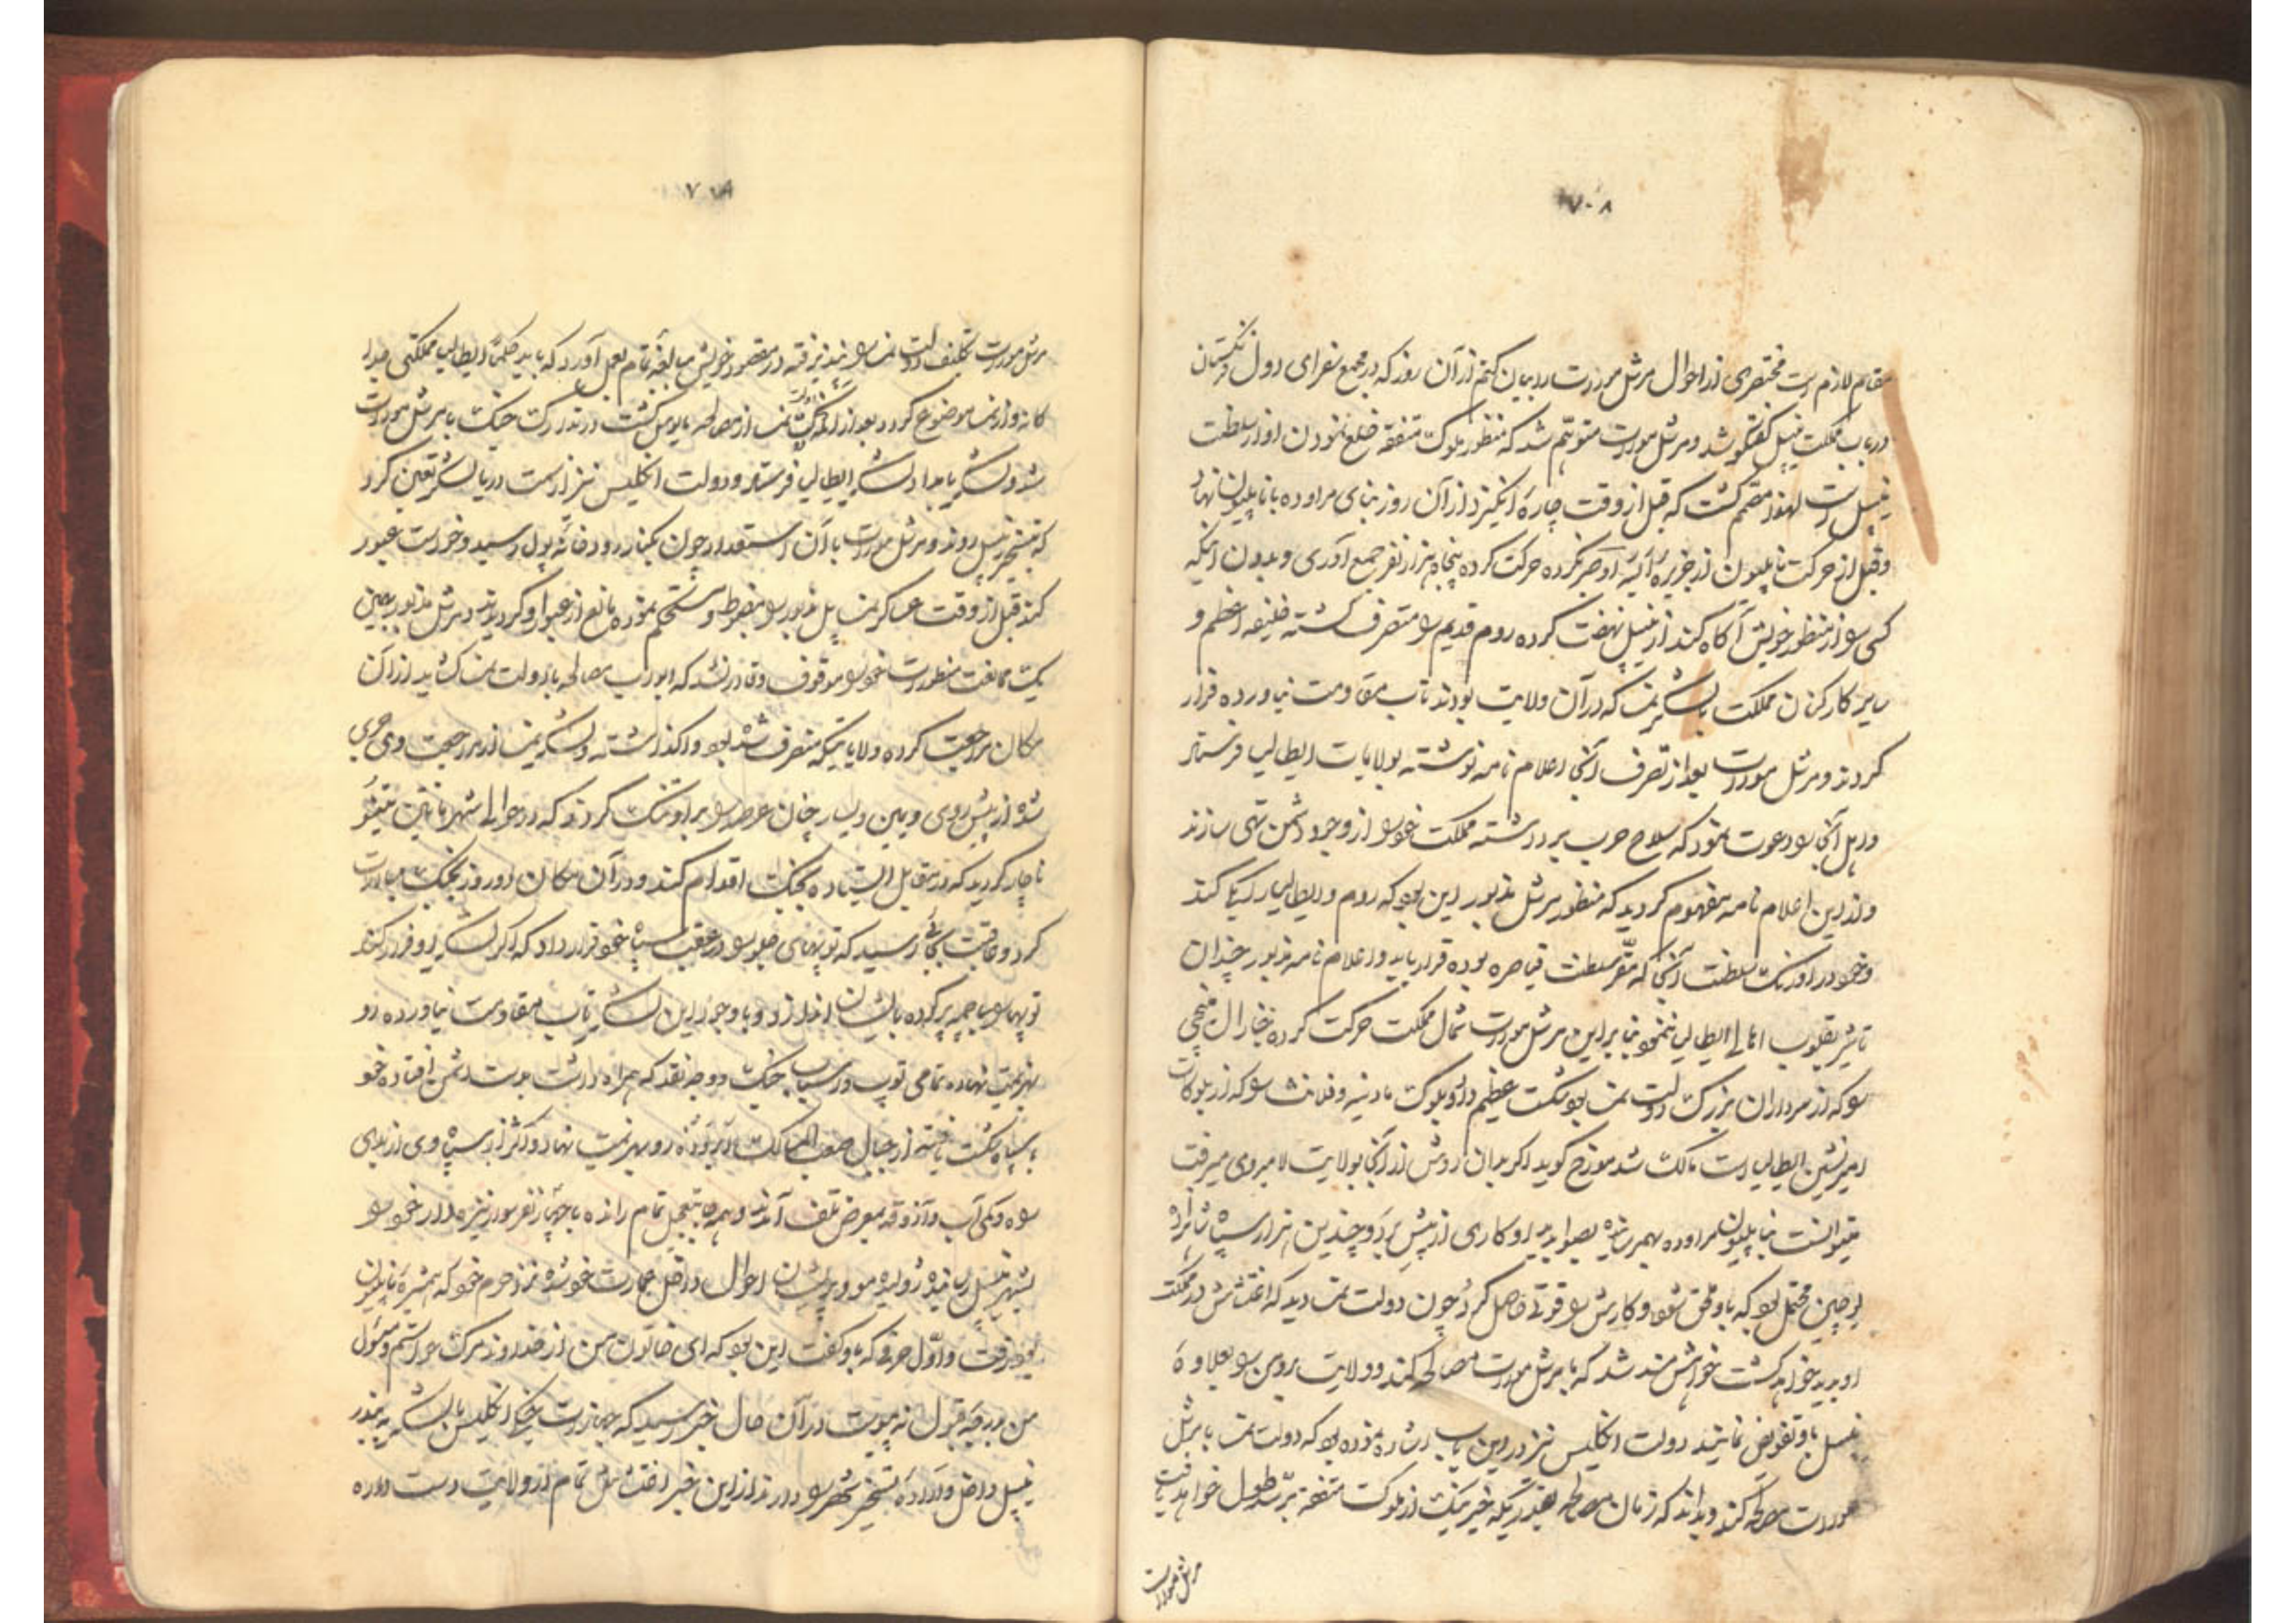 ۷۰۸
مقام لازم است مختصری از احوال مرشل مورات را بیان کنم از آن روز که در مجمع سفرای دول فرنگستان
در باب مملکت نیپل گفتگو شد و مرشل مورات متوهم شد که منظور ملوک متفقه خلع نمودن او از سلطنت
نیپل است لهذا مصمم گشت که قبل از وقت چاره انگیزد از آن روز بنای مراوده با ناپلیون نهاد
و قبل از حرکت ناپلیون از جزیره البه او خبر کرده حرکت کرده پنجاه هزار نفر جمع آوری و بدون اینکه
کسی را از منظور خویش آگاه کند از نیپل نهضت کرده روم قدیم را متصرف گشته خلیفه اعظم و
سایر کارکنان مملکت با لشکر نمسه که در آن ولایت بودند تاب مقاومت نیاورده فرار
کردند و مرشل مورات بعد از تصرف آنجا اعلام نامه نوشته بولایات ایطالیا فرستاد
و اهل آنجا را دعوت نمود که سلاح حرب برداشته مملکت خود را از وجود دشمن تهی سازند
و از این اعلام نامه مفهوم گردید که منظور مرشل مذبور این بود که روم و ایطالیا را یکجا کند
و خود در اورنگ سلطنت آنجا که مقر سلطنت قیاصره بوده قرار یابد و اعلام نامه مذبور چندان
تاثیر بقلوب اهالی ایطالیا ننمود بنا براین مرشل مورات شمال مملکت حرکت کرده جنرال
را که از سرداران بزرگ دولت نمسه بود شکست عظیم داد و بلوک مادنیه و فلانشا را که از بلوکات
امیرنشین ایطالیا است مالک شد مورخ گوید اگر بدان روش از آنجا بولایت لامبردی میرفت
میتوانست با ناپلیون مراوده بهم رسانیده بصوابدید او کاری از پیش برد و چندین هزار سپاه
لمرچین محتمل بود که باو ملحق شود و کارش را قوتی حاصل گردد چون دولت نمسه دید که اغتشاش در مملکت
او پدید خواهد گشت خواهشمند شد که با مرشل مورات مصالحه کند و ولایت روم را بعلاوه
نیپل باو تفویض نمایند دولت انگلیس نیز در این باب اشاره نموده بود که دولت نمسه با مرشل
مورات مصالحه کند و بداند که زمان مصالحه بقدریکه خبر یک از ملوک متفقه برسد طول خواهد یافت
مرشل مورات
مرشل مورات تکلیف دولت نمسه را نپذیرفته در مقصود خویش مبالغه تمام بعمل آورد که باید کلمه ایطالیا مملکتی جدا
گانه و از نمسه موضوع گردد بعد از آنکه دولت نمسه از مصالحه مایوس گشت در تدارک جنگ با مرشل مورات
شد و لشکر بامداد لشکر ایطالیا فرستاد و دولت انگلیس نیز از سمت دریا لشکر تعین کرد
که بتسخیر نیپل روند و مرشل مورات با آن استعداد چون بکنار رودخانه پول رسید و خواست عبور
کند قبل از وقت عساکر نمسه پل مذبور را مضبوط و مستحکم نموده مانع از عبور او گردیدند و مرشل مذبور بهمین
یک ممانعت منظورات خود را موقوف و قادر نشد که ابواب مصالحه با دولت نمسه گشاید از آن
مکان مراجعت کرده ولایاتیکه متصرف شده بود واگذاشته و لشکر نمسه از مراجعت وی جری
شده از پیش روی و یمین و یسار چنان عرصه را بر او تنگ کردند که در حوالی شهر
ناچار گردید که در مقابل ایستاده بجنگ اقدام کند و در آن مکان دو روز بجنگ مبادرت
کرد و عاقبت بجائی رسید که توپهای جلو را در عقب سپاه خود قرار داد که اگر لشکر او فرار کنند
توپها را ساچمه پر کرده بایشان اندازد و با وجود این لشکر تاب مقاومت نیاورده رو
بهزیمت نهاده تمامی توپ و اسباب جنگ و وجه نقد که همراه داشت بدست دشمن افتاده خود
با سپاه شکست یافته از جبال صعب المسالک رو بهزیمت نهاد و اکثر از سپاه وی از بلای
و کمی آب و آذوقه بمعرض تلف آمدند و همه جا بتعجیل تمام رانده با چهار نفر سوار نیزه دار خود را
بشهر نیپل رسانیده ژولیده مو و پریشان احوال داخل عمارت خود شده نزد حرم خود که همشیره ناپلیون
بود رفت و اول حرفی که باو گفت این بود که ای خاتون من از خداوند مرگ خواستم و مسئول
من بدرجه قبول نه پیوست در آن حال خبر رسید که جهازات جنگی انگلیس با لشکر به بندر
نیپل داخل و اراده تسخیر شهر را دارند از این خبر اغتشاش تمام در ولایت دست داده